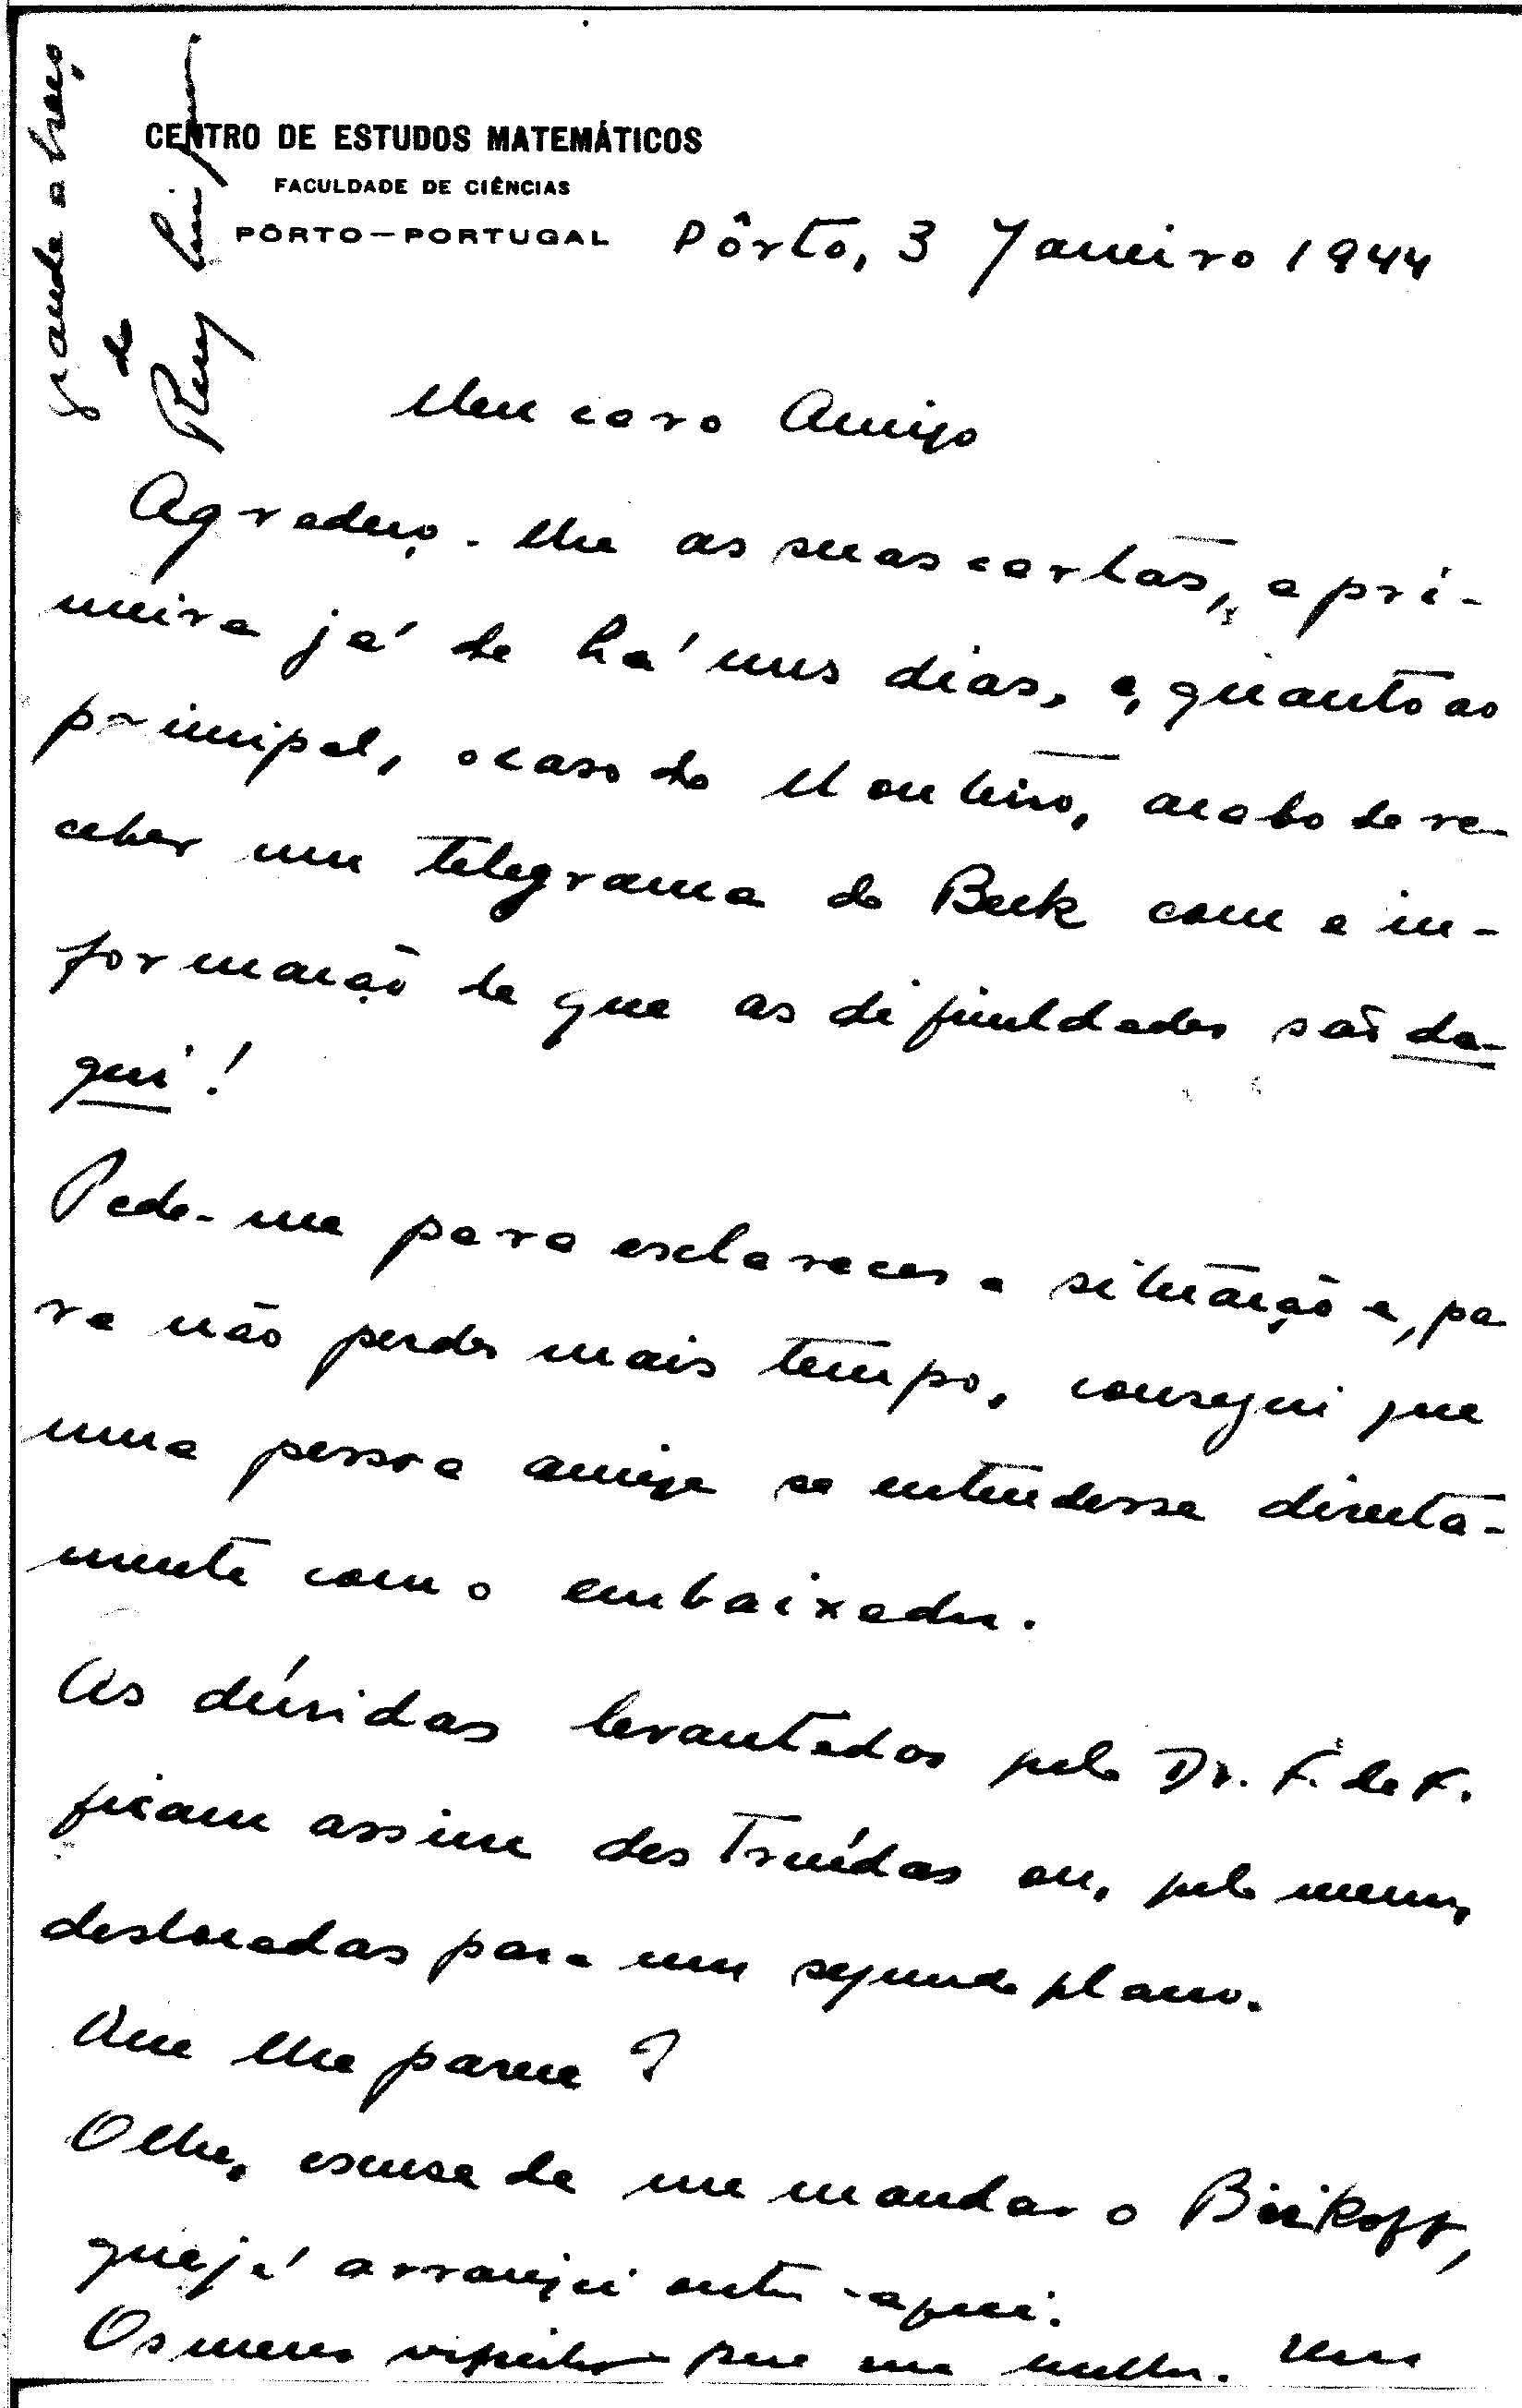 CENTRO DE ESTUDOS MATEMÁTICOS
FACULDADE DE CIÊNCIAS
PÔRTO—PORTUGAL
Pôrto, 3 Janeiro 1944
Meu caro Amigo
Agradeço-lhe as suas cartas, a pri-
meira já de há uns dias, e, quanto ao
principal, o caso do Monteiro, acabo de re-
ceber um telegrama do Beck com a in-
formação de que as dificuldades são da-
qui!
Pede-me para esclarecer a situação e, pa
ra não perder mais tempo, consegui que
uma pessoa amiga se entendesse directa-
mente com o embaixador.
As dúvidas levantadas pelo Dr. F. de F.
ficam assim destruídas ou, pelo menos,
deslocadas para um segundo plano.
Que lhe parece?
Olhe, escusa de me mandar o Birkoff,
que já arranjei outro aqui.
Os meus respeitos para sua mulher. Um
grande abraço
do
Ruy Luís Gomes